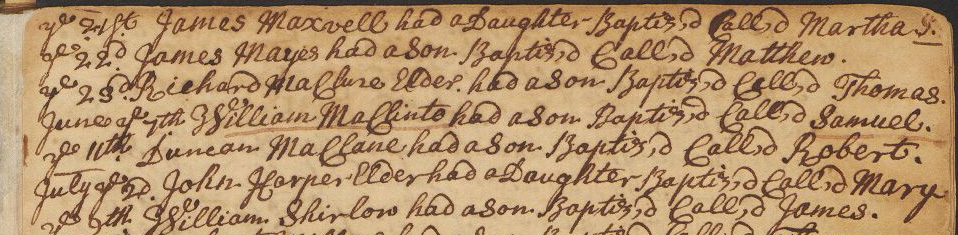 ye 21st James Maxwell had a Daughter Baptiz,d Call,d Martha S.
ye 22d James Mayes had a Son Baptiz,d Call,d Matthew.
ye 23d Richard MaClure Elder had a Son Baptiz,d Call,d Thomas.
June ye 7th William MaClinto had a Son Baptiz,d Call,d Samuel.
ye 11th Duncan MaClane had a Son Baptiz,d Call,d Robert.
July ye 2d John Harper Elder had a Daughter Baptiz,d Call,d Mary
ye 9th William Shirlow had a Son Baptiz,d Call,d James.